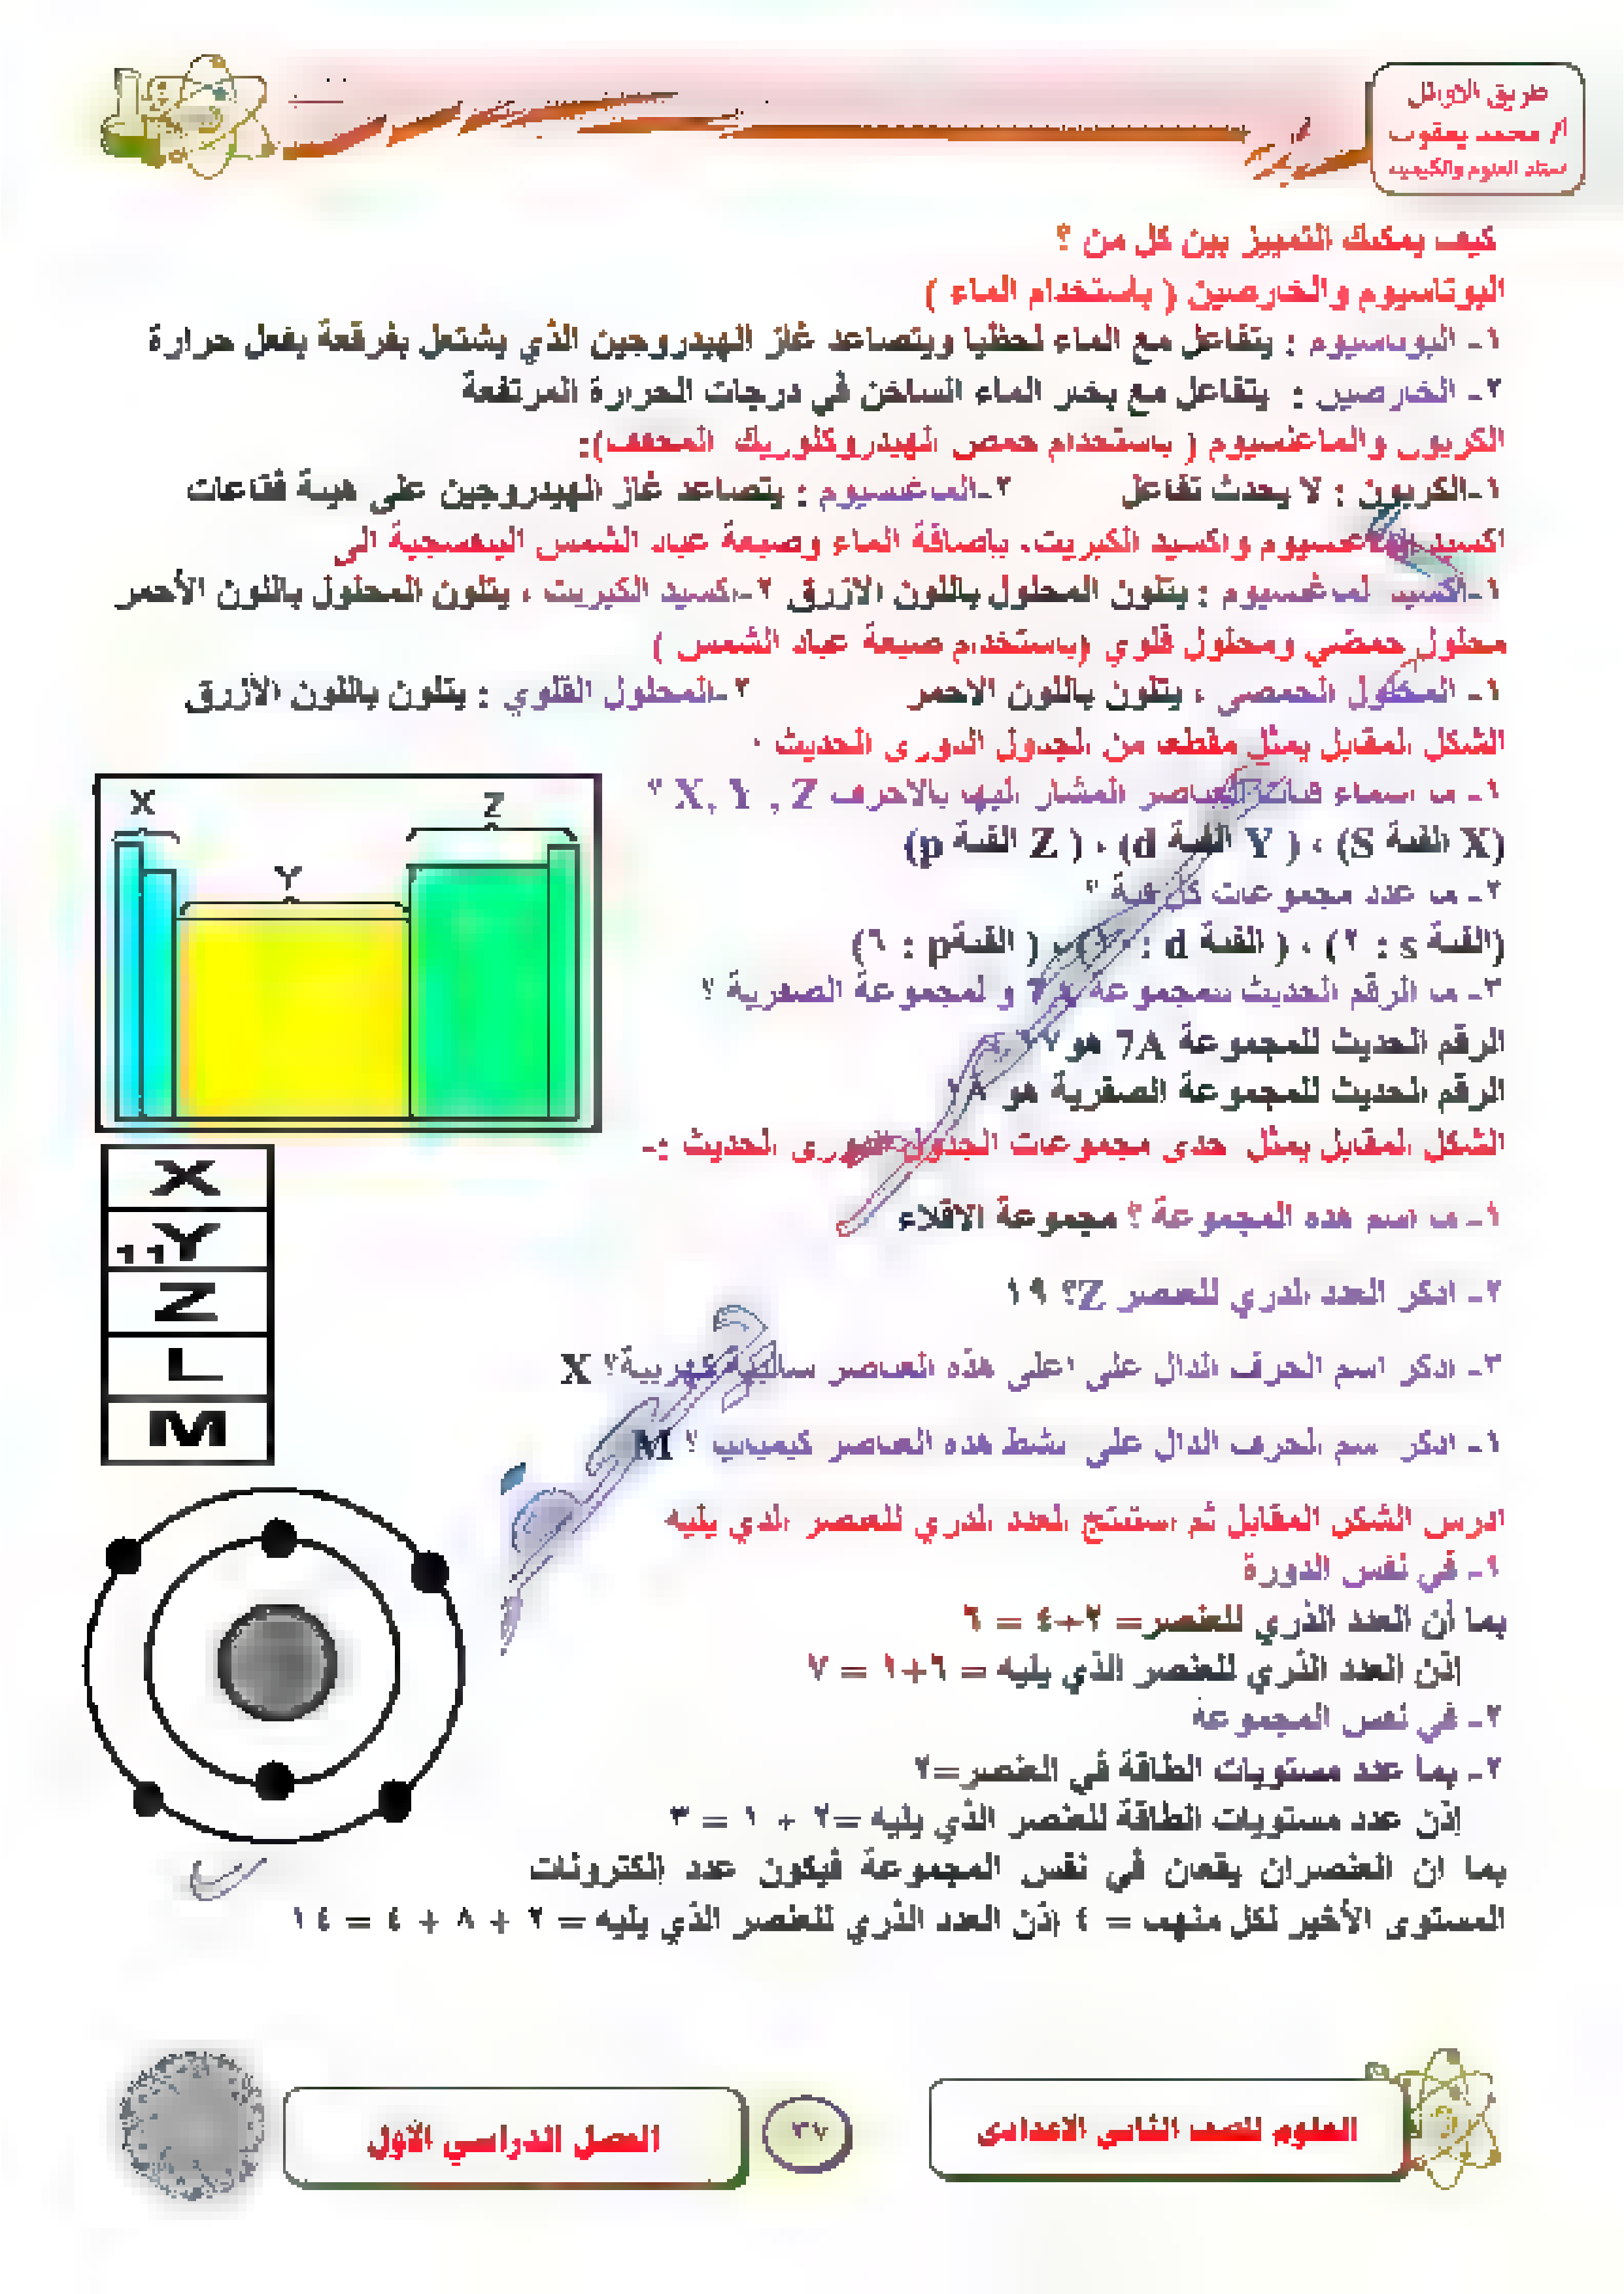 طريق الاوائل
أ/ محمد يعقوب
استاذ العلوم والكيمياء
كيف يمكنك التمييز بين كل من ؟
البوتاسيوم والخارصين ( باستخدام الماء )
١- البوتاسيوم : يتفاعل مع الماء لحظيا ويتصاعد غاز الهيدروجين الذي يشتعل بفرقعة بفعل حرارة
٢- الخارصين : يتفاعل مع بخار الماء الساخن في درجات الحرارة المرتفعة
الكربون والماغنسيوم ( باستخدام حمض الهيدروكلوريك المخفف):
١-الكربون : لا يحدث تفاعل ٢-الماغنسيوم : يتصاعد غاز الهيدروجين على هيئة فقاعات
اكسيد الماغنسيوم واكسيد الكبريت. باضافة الماء وصبغة عباد الشمس البنفسجية الى
١-اكسيد الماغنسيوم : يتلون المحلول باللون الازرق ٢-اكسيد الكبريت : يتلون المحلول باللون الأحمر
محلول حمضي ومحلول قلوي (باستخدام صبغة عباد الشمس )
١- المحلول الحمضى : يتلون باللون الاحمر ٢-المحلول القلوي : يتلون باللون الازرق
الشكل المقابل يمثل مقطع من الجدول الدورى الحديث :
١- ما اسماء فئات العناصر المشار اليها بالاحرف X, Y , Z ؟
(X الفئة S) ، ( Y الفئة d) ، ( Z الفئة p)
٢- ما عدد مجموعات كل فئة ؟
(الفئة s : ٢) ، ( الفئة d : ١٠) ، ( الفئة p : ٦)
٣- ما الرقم الحديث للمجموعة 7A و المجموعة الصفرية ؟
الرقم الحديث للمجموعة 7A هو ١٧
الرقم الحديث للمجموعة الصفرية هو ١٨
X
Y
Z
الشكل المقابل يمثل احدى مجموعات الجدول الدورى الحديث :-
١- ما اسم هذه المجموعة ؟ مجموعة الاقلاء
٢- اذكر العدد الذري للعنصر Z؟ ١٩
٣- اذكر اسم الحرف الدال على اعلى هذه العناصر سالبية كهربية؟ X
١- اذكر اسم الحرف الدال على انشط هذه العناصر كيميائيا ؟ M
X
11Y
Z
L
M
ادرس الشكل المقابل ثم استنتج العدد الذري للعنصر الذي يليه
١- في نفس الدورة
بما أن العدد الذري للعنصر= ٢+٤ = ٦
إذن العدد الذري للعنصر الذي يليه = ٦+١ = ٧
٢- في نفس المجموعة
٢- بما عدد مستويات الطاقة في العنصر=٢
إذن عدد مستويات الطاقة للعنصر الذي يليه =٢ + ١ = ٣
بما ان العنصران يقعان في نفس المجموعة فيكون عدد إلكترونات
المستوى الأخير لكل منهما = ٤ إذن العدد الذري للعنصر الذي يليه = ٢ + ٨ + ٤ = ١٤
العلوم للصف الثاني الاعدادى
٣٧
الفصل الدراسي الأول